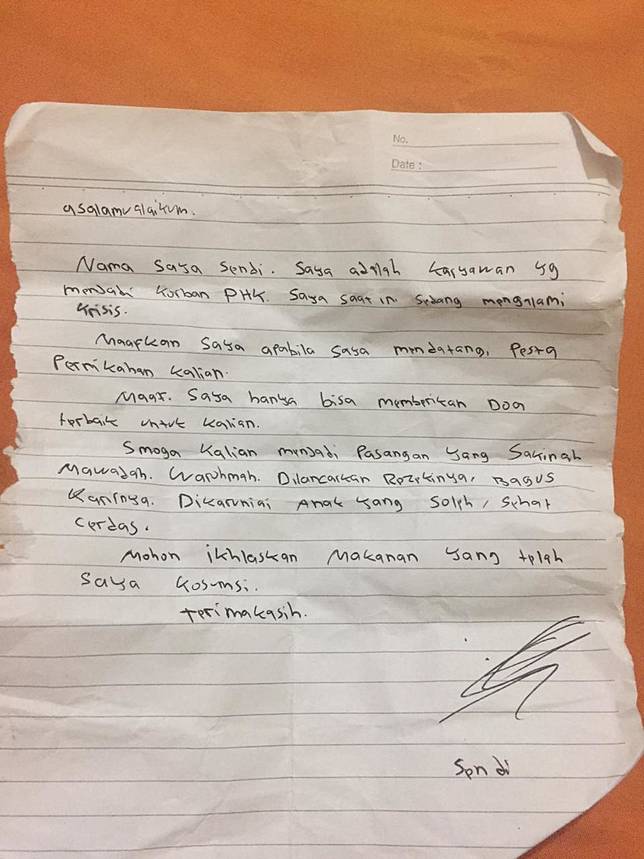 No.
Date :
asalamualaikum.
Nama Saya Sendi. Saya adalah karyawan yg
menjadi korban PHK. Saya saat ini sedang mengalami
krisis.
Maafkan Saya apabila saya mendatangi Pesta
Pernikahan kalian.
Maaf. Saya hanya bisa memberikan Doa
terbaik untuk kalian.
Smoga Kalian menjadi Pasangan Yang Sakinah
Mawadah. Warohmah. Dilancarkan Rezekinya, Bagus
Karirnya. Dikaruniai Anak Yang Soleh, Sehat
Cerdas.
Mohon ikhlaskan Makanan Yang telah
Saya kosumsi.
terimakasih.
Sendi